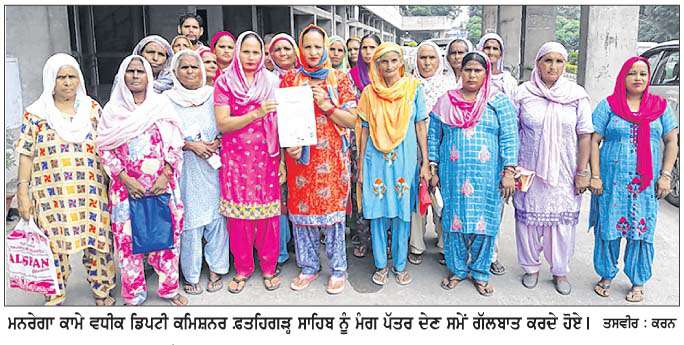 ALSIAN
ਮਨਰੇਗਾ ਕਾਮੇ ਵਧੀਕ ਡਿਪਟੀ ਕਮਿਸ਼ਨਰ ਫ਼ਤਹਿਗੜ੍ਹ ਸਾਹਿਬ ਨੂੰ ਮੰਗ ਪੱਤਰ ਦੇਣ ਸਮੇਂ ਗੱਲਬਾਤ ਕਰਦੇ ਹੋਏ। ਤਸਵੀਰ : ਕਰਨ